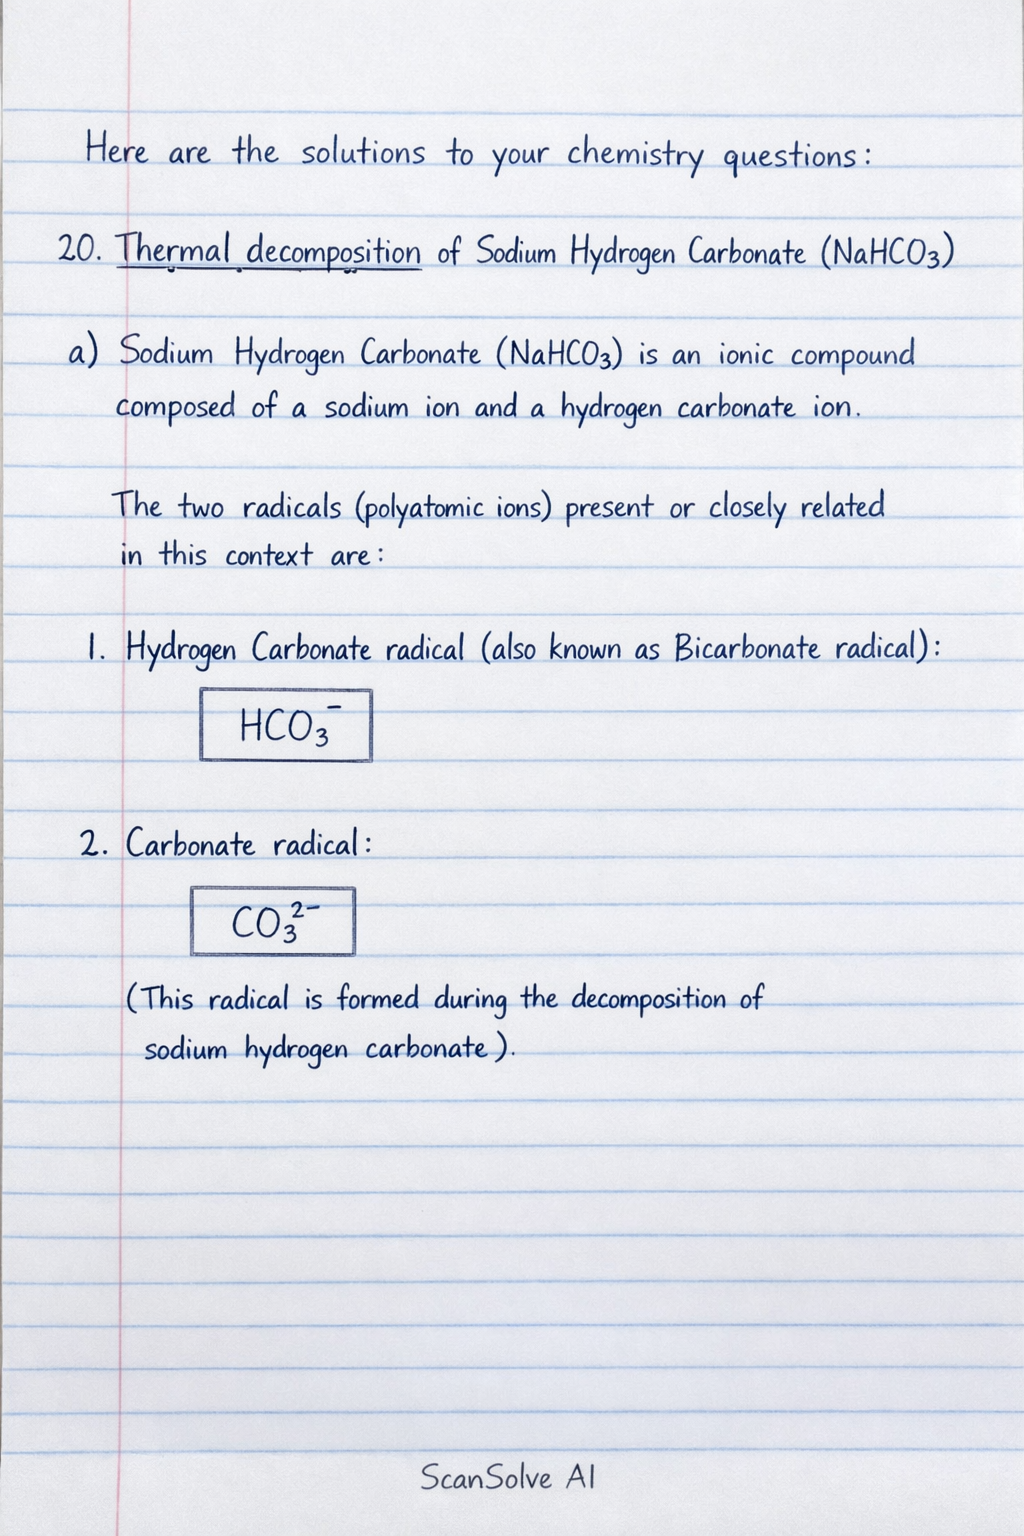 Here are the solutions to your chemistry questions:
20. Thermal decomposition of Sodium Hydrogen Carbonate (NaHCO₃)
a) Sodium Hydrogen Carbonate (NaHCO₃) is an ionic compound
composed of a sodium ion and a hydrogen carbonate ion.
The two radicals (polyatomic ions) present or closely related
in this context are:
1. Hydrogen Carbonate radical (also known as Bicarbonate radical):
HCO₃⁻
2. Carbonate radical:
CO₃²⁻
(This radical is formed during the decomposition of
sodium hydrogen carbonate).
ScanSolve AI